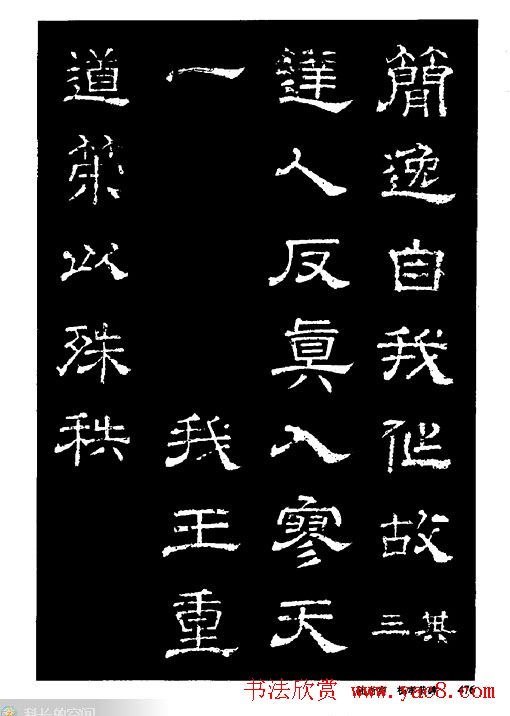 簡逸自我作故其三
達人反眞入寥天
一 我王重
道策以殊秩
476
书法欣赏 www.yac8.com